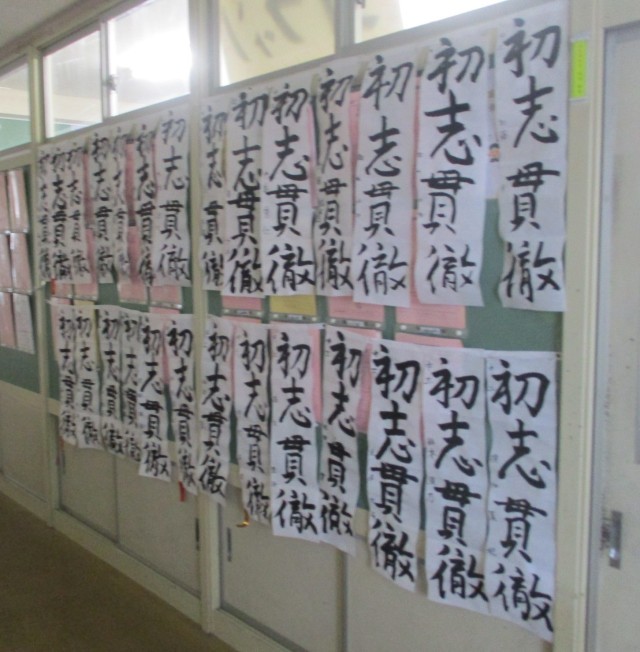 初志貫徹
初志貫徹
初志貫徹
初志貫徹
初志貫徹
初志貫徹
初志貫徹
初志貫徹
初志貫徹
初志貫徹
初志貫徹
初志貫徹
初志貫徹
初志貫徹
初志貫徹
初志貫徹
初志貫徹
初志貫徹
初志貫徹
初志貫徹
初志貫徹
初志貫徹
初志貫徹
初志貫徹
初志貫徹
初志貫徹
初志貫徹